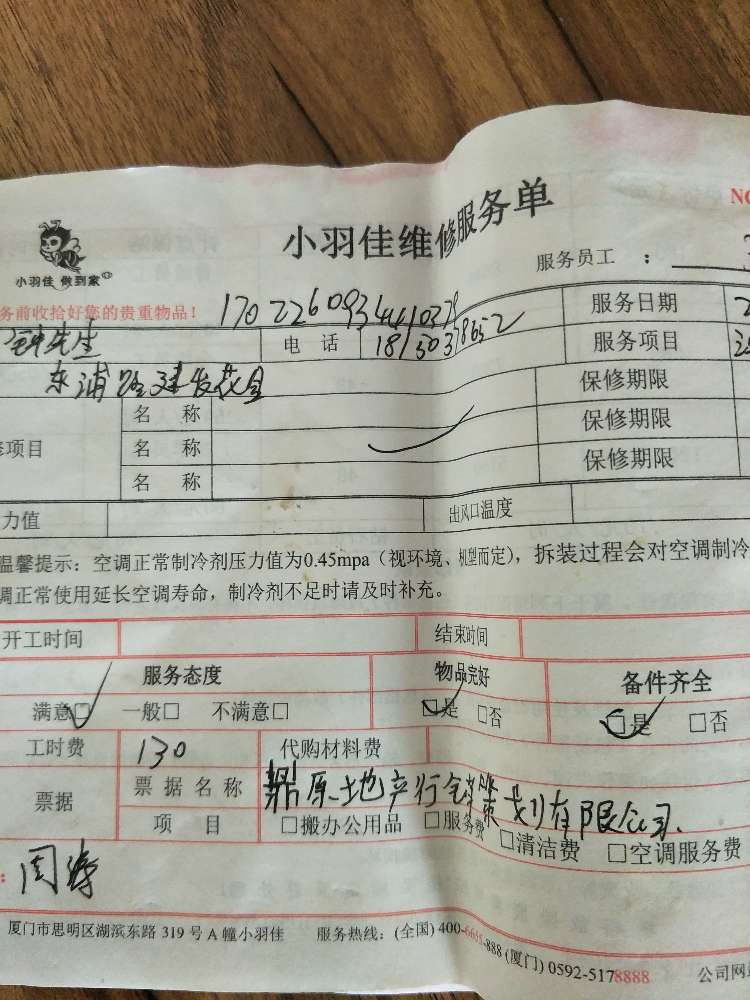 小羽佳维修服务单
NO
小羽佳 做到家
服务员工 :
务前收拾好您的贵重物品!
17022609344410378
服务日期
钟先生
电 话
18150378652
服务项目
东浦路建发花园
保修期限
名 称
保修期限
项目
名 称
保修期限
名 称
力值
出风口温度
温馨提示：空调正常制冷剂压力值为0.45mpa（视环境、机型而定），拆装过程会对空调制冷
调正常使用延长空调寿命，制冷剂不足时请及时补充。
开工时间
结束时间
服务态度
物品完好
备件齐全
满意□ 一般□ 不满意□
□是 □否
□是 □否
工时费
130
代购材料费
票据
票据名称
鼎原土地产行销策划有限公司.
项 目
□搬办公用品 □服务费 □清洁费 □空调服务费
厦门市思明区湖滨东路 319 号 A 幢小羽佳 服务热线：(全国) 400-6665-888 (厦门) 0592-5178888 公司网